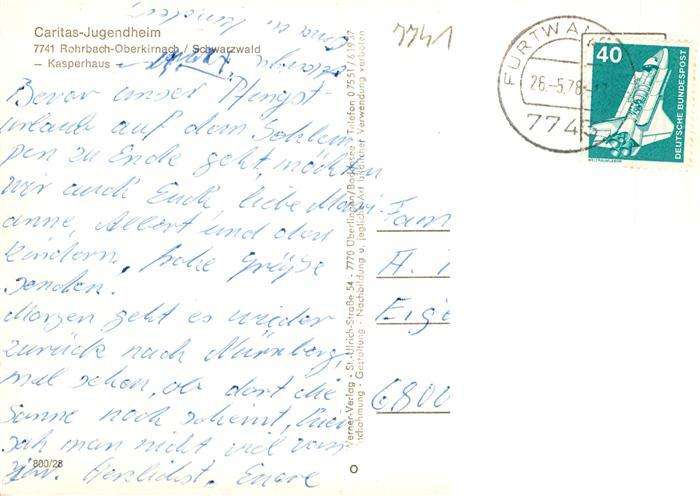 Caritas-Jugendheim
7741 Rohrbach-Oberkirnach / Schwarzwald
– Kasperhaus –
Bevor unser Pfingst-
urlaub auf dem Schlem
pen zu Ende geht, möchten
wir auch Euch, liebe Mari
anne, Albert und den
Kindern, frohe Grüße
senden.
Morgen geht es wieder
zurück nach Nürnberg,
mal sehen, ob dort die
Sonne noch scheint, hier
sah man nicht viel von
ihr. Herzlichst, Eure
800/28
Werner-Verlag · St.-Ulrich-Straße 54 · 7770 Überlingen/Bodensee · Telefon 07551/61937
Nachahmung · Gestaltung · Nachbildung u. jegliche Art ähnlicher Verwendung verboten
7741
FURTWA
26.-5.78
774
40
DEUTSCHE BUNDESPOST
Fam
A.
Eige
6800